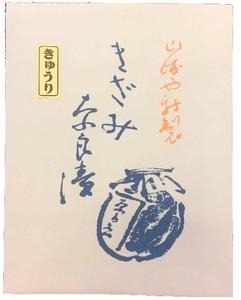 山海や特製
きざみ
奈良漬
きゅうり